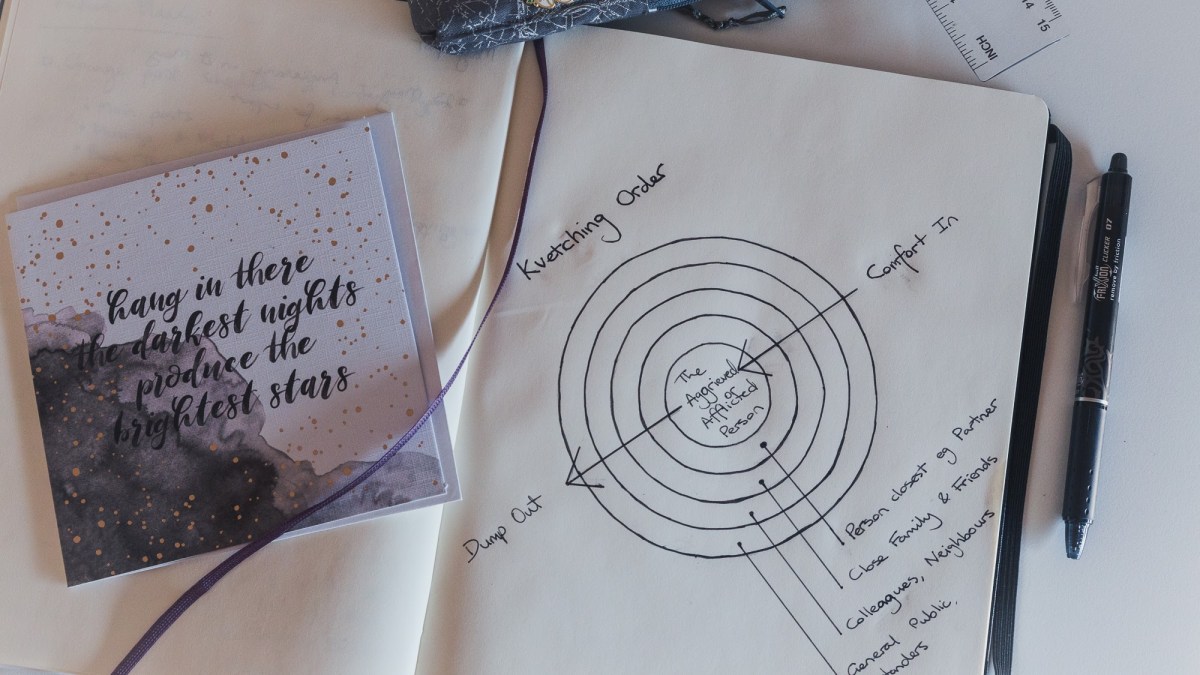 hang in there
the darkest nights
produce the
brightest stars
Kvetching Order
Comfort In
The
Aggrieved
or
Afflicted
Person
Dump Out
Person closest eg Partner
Close Family & Friends
Colleagues, Neighbours
General Public,
14 15
INCH
FriXion CLICKER 07
remove by friction